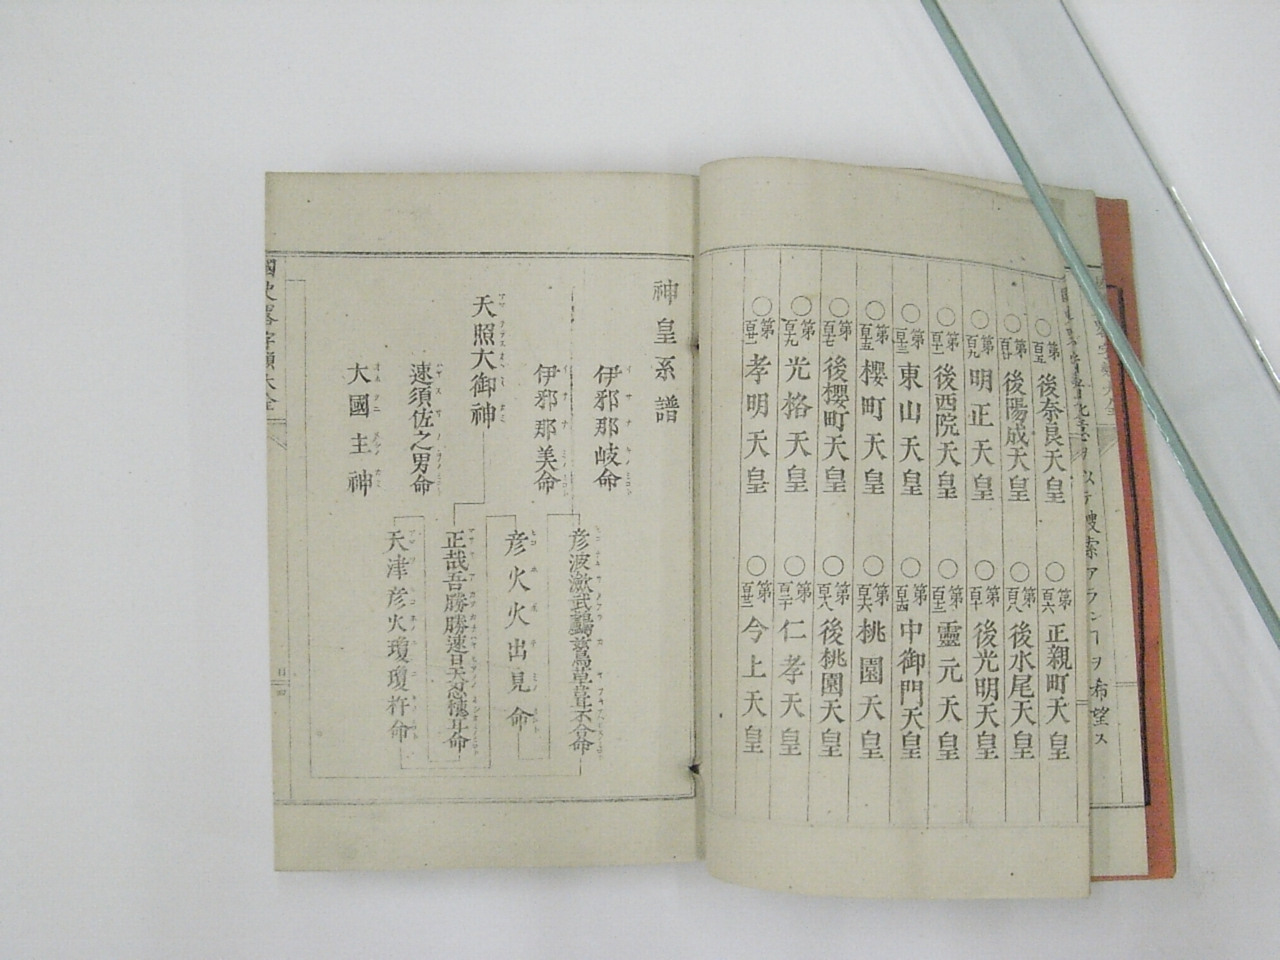 ○第百五 後奈良天皇
○第百六 正親町天皇
○第百七 後陽成天皇
○第百八 後水尾天皇
○第百九 明正天皇
○第百十 後光明天皇
○第百十一 後西院天皇
○第百十二 靈元天皇
○第百十三 東山天皇
○第百十四 中御門天皇
○第百十五 櫻町天皇
○第百十六 桃園天皇
○第百十七 後櫻町天皇
○第百十八 後桃園天皇
○第百十九 光格天皇
○第百二十 仁孝天皇
○第百廿一 孝明天皇
○第百廿二 今上天皇
神皇系譜
伊邪那岐命
伊邪那美命
天照大御神
速須佐之男命
大國主神
彦波瀲武鸕鷀草葺不合命
彦火火出見命
正哉吾勝勝速日天忍穗耳命
天津彦火瓊瓊杵命
國史畧字類大全
目 四
ヲ以テ搜索アランヿヲ希望ス